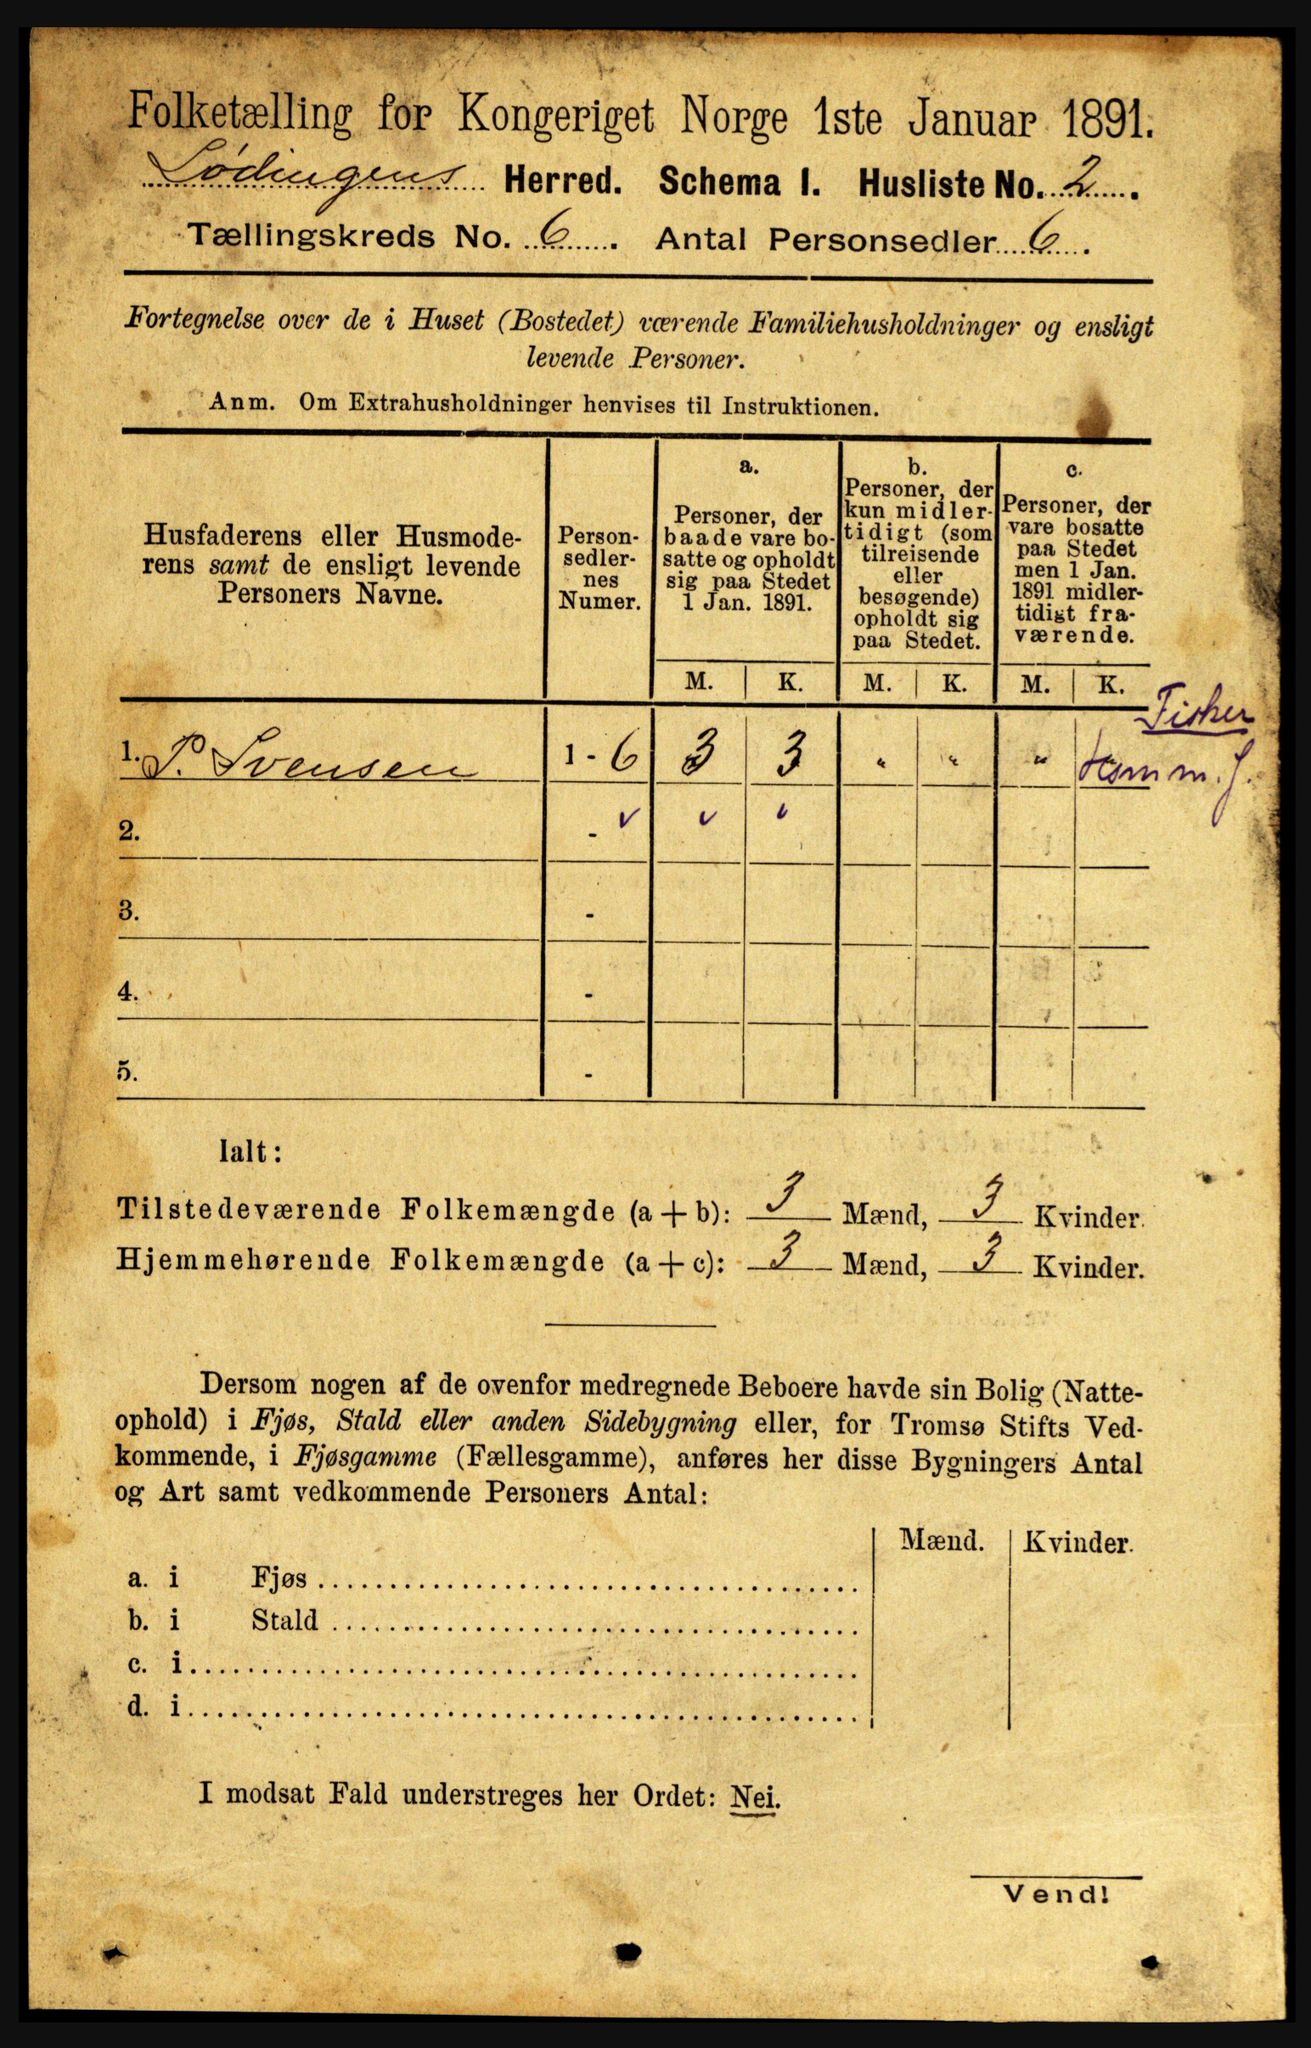 Folketælling for Kongeriget Norge 1ste Januar 1891.
Lødingens Herred. Schema I. Husliste No. 2.
Tællingskreds No. 6. Antal Personsedler 6.
Fortegnelse over de i Huset (Bostedet) værende Familiehusholdninger og ensligt
levende Personer.
Anm. Om Extrahusholdninger henvises til Instruktionen.
Husfaderens eller Husmode-
rens samt de ensligt levende
Personers Navne.
Person-
sedler-
nes
Numer.
a.
Personer, der
baade vare bo-
satte og opholdt
sig paa Stedet
1 Jan. 1891.
b.
Personer, der
kun midler-
tidigt (som
tilreisende
eller
besøgende)
opholdt sig
paa Stedet.
c.
Personer, der
vare bosatte
paa Stedet
men 1 Jan.
1891 midler-
tidigt fra-
værende.
M. K. M. K. M. K.
Fisker
1. P. Svensen 1 - 6 3 3 " " "
2. -
3. -
4. -
5. -
Ialt:
Tilstedeværende Folkemængde (a + b): 3 Mænd, 3 Kvinder.
Hjemmehørende Folkemængde (a + c): 3 Mænd, 3 Kvinder.
Dersom nogen af de ovenfor medregnede Beboere havde sin Bolig (Natte-
ophold) i Fjøs, Stald eller anden Sidebygning eller, for Tromsø Stifts Ved-
kommende, i Fjøsgamme (Fællesgamme), anføres her disse Bygningers Antal
og Art samt vedkommende Personers Antal:
Mænd. Kvinder.
a. i Fjøs
b. i Stald
c. i
d. i
I modsat Fald understreges her Ordet: Nei.
Vend!